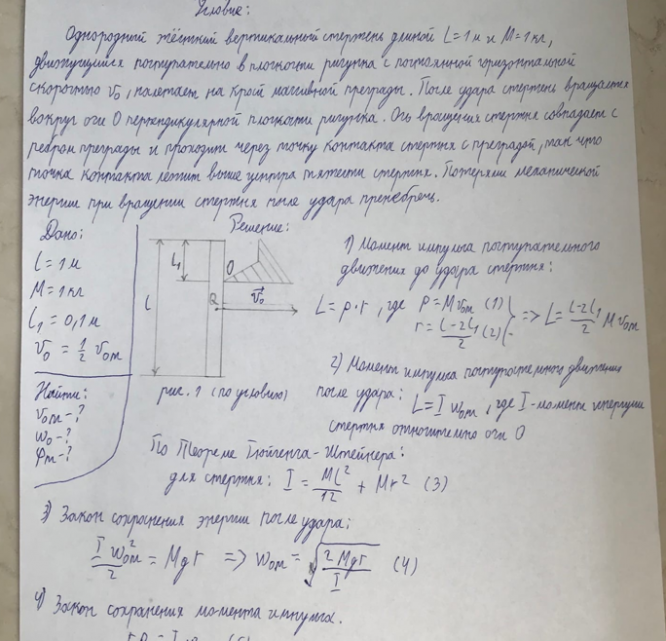 Условие:
Однородный жёсткий вертикальный стержень длиной L=1м и M=1кг,
движущийся поступательно в плоскости рисунка с постоянной горизонтальной
скоростью v₀, налетает на край массивной преграды. После удара стержень вращается
вокруг оси O перпендикулярной плоскости рисунка. Ось вращения стержня совпадает с
ребром преграды и проходит через точку контакта стержня с преградой, так что
точка контакта лежит выше центра тяжести стержня. Потерями механической
энергии при вращении стержня после удара пренебречь.
Дано:
L=1м
M=1кг
L₁=0,1м
v₀ = 1/2 v₀m
Найти:
v₀m-?
ω₀-?
φm-?
Решение:
L₁
O
L
v₀
рис. 1 (по условию)
1) Момент импульса поступательного
движения до удара стержня:
L=p·r, где p=Mv₀m (1)
r=(L-2L₁)/2 (2) => L=(L-2L₁)/2 Mv₀m
2) Момент импульса поступательного движения
после удара: L=I ω₀m, где I-момент инерции
стержня относительно оси O
По Теореме Гюйгенса-Штейнера:
для стержня: I = ML²/12 + Mr² (3)
3) Закон сохранения энергии после удара:
I ω₀m²/2 = Mgr => ω₀m = √(2Mgr/I) (4)
4) Закон сохранения момента импульса.